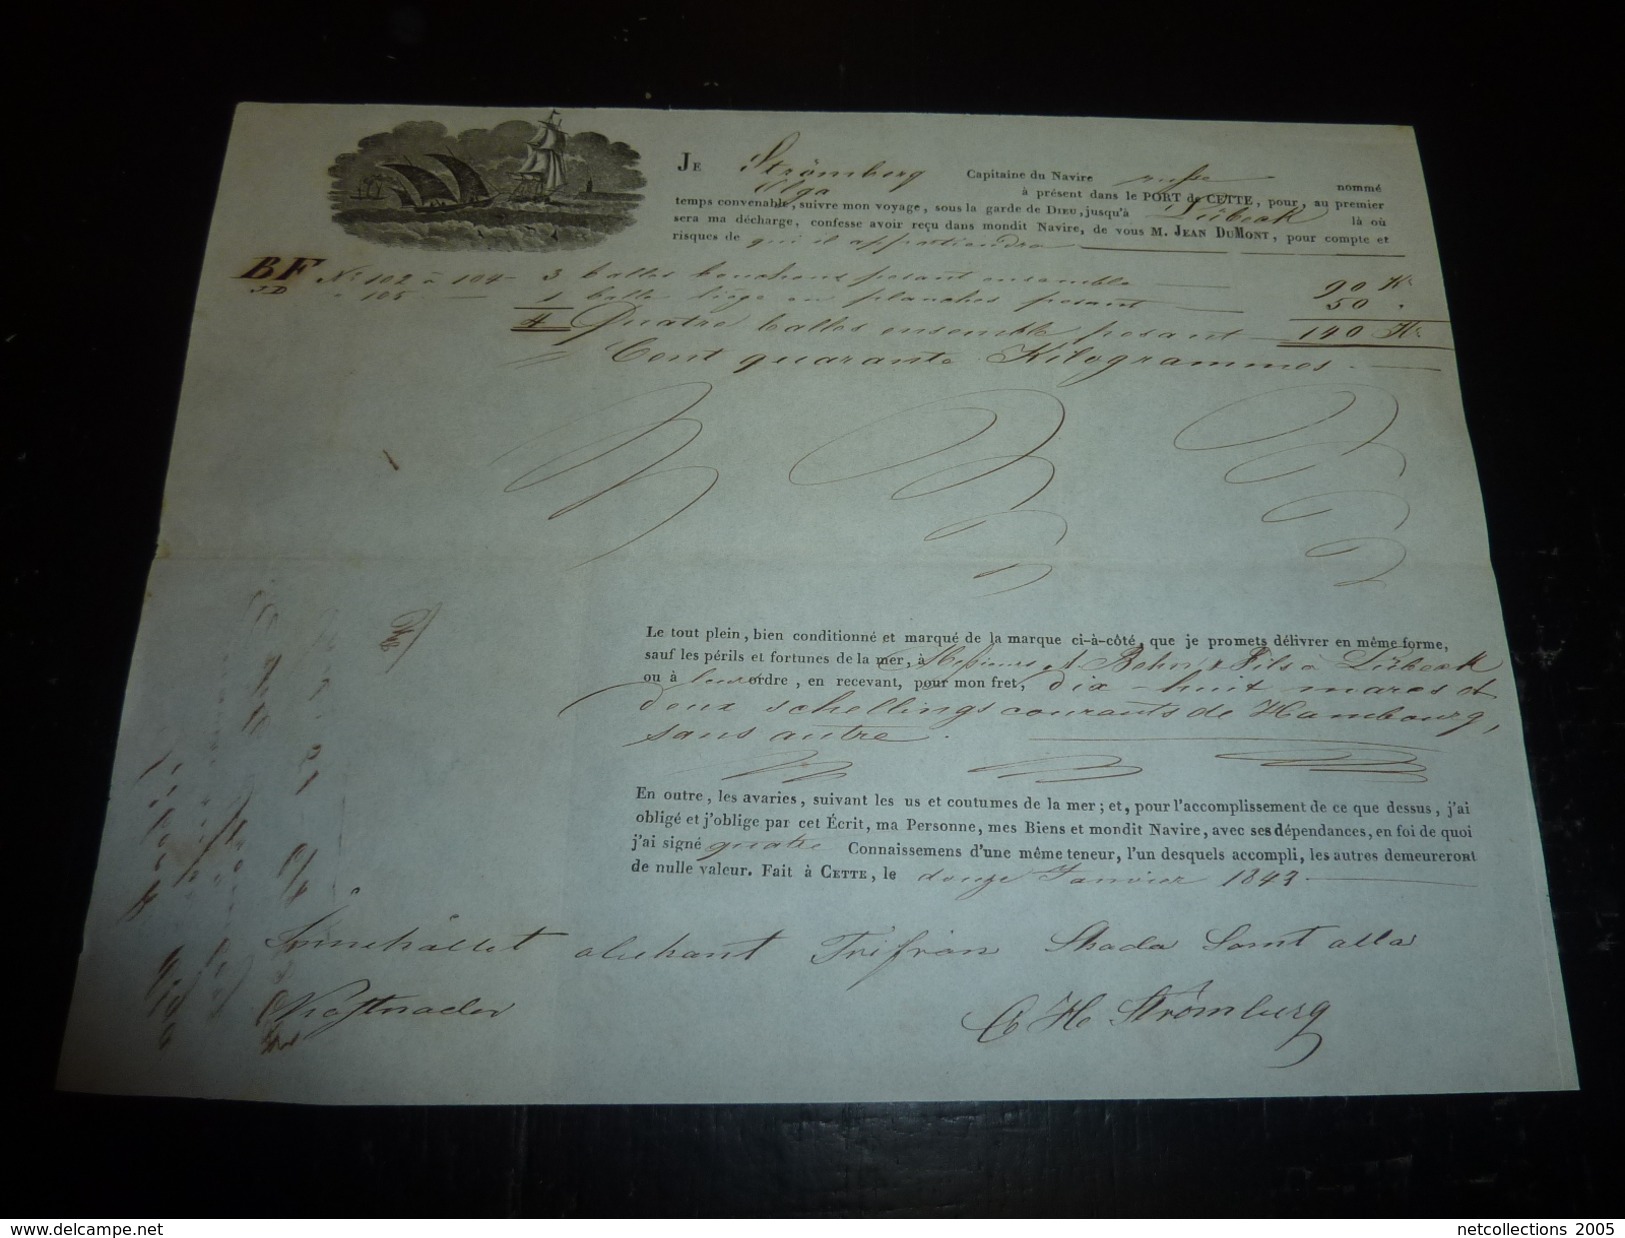 JE Strömberg Capitaine du Navire russe nommé
Olga à présent dans le PORT de CETTE, pour, au premier
temps convenable, suivre mon voyage, sous la garde de DIEU, jusqu'à Lübeck là où
sera ma décharge, confesse avoir reçu dans mondit Navire, de vous M. JEAN DUMONT, pour compte et
risques de qui il appartiendra
BF No. 102 à 104 - 3 balles bouchons pesant ensemble 90 Ko
JD " 105 - 1 balle liège en planches pesant 50 "
4 Quatre balles ensemble pesant 140 Ko
Cent quarante Kilogrammes.
Le tout plein, bien conditionné et marqué de la marque ci-à-côté, que je promets délivrer en même forme,
sauf les périls et fortunes de la mer, à Messieurs A. Behn & Fils à Lübeck
ou à leur ordre, en recevant, pour mon fret, dix-huit marcs et
deux schellings courants de Hambourg,
sans autre.
En outre, les avaries, suivant les us et coutumes de la mer; et, pour l'accomplissement de ce que dessus, j'ai
obligé et j'oblige par cet Écrit, ma Personne, mes Biens et mondit Navire, avec ses dépendances, en foi de quoi
j'ai signé quatre Connaissemens d'une même teneur, l'un desquels accompli, les autres demeureront
de nulle valeur. Fait à CETTE, le douze Janvier 1843
Innehållet obekant Frifrån Skada Samt alla
Kostnader
C H Strömberg
delcampe.net
netcollections 2005